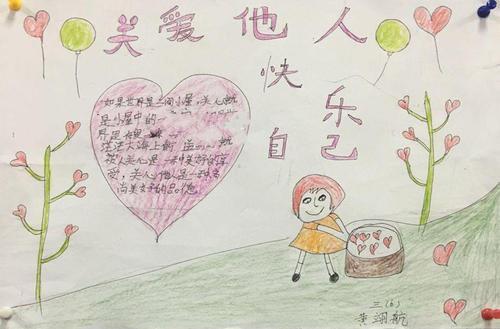 关爱他人
快乐
自己
如果世界是一间小屋,关人就
是小屋中的一
界是
茫茫大海上
关人关心是一种美好的享
受,关人他人是一种高
尚美好的品德
三(6)
黄翊航